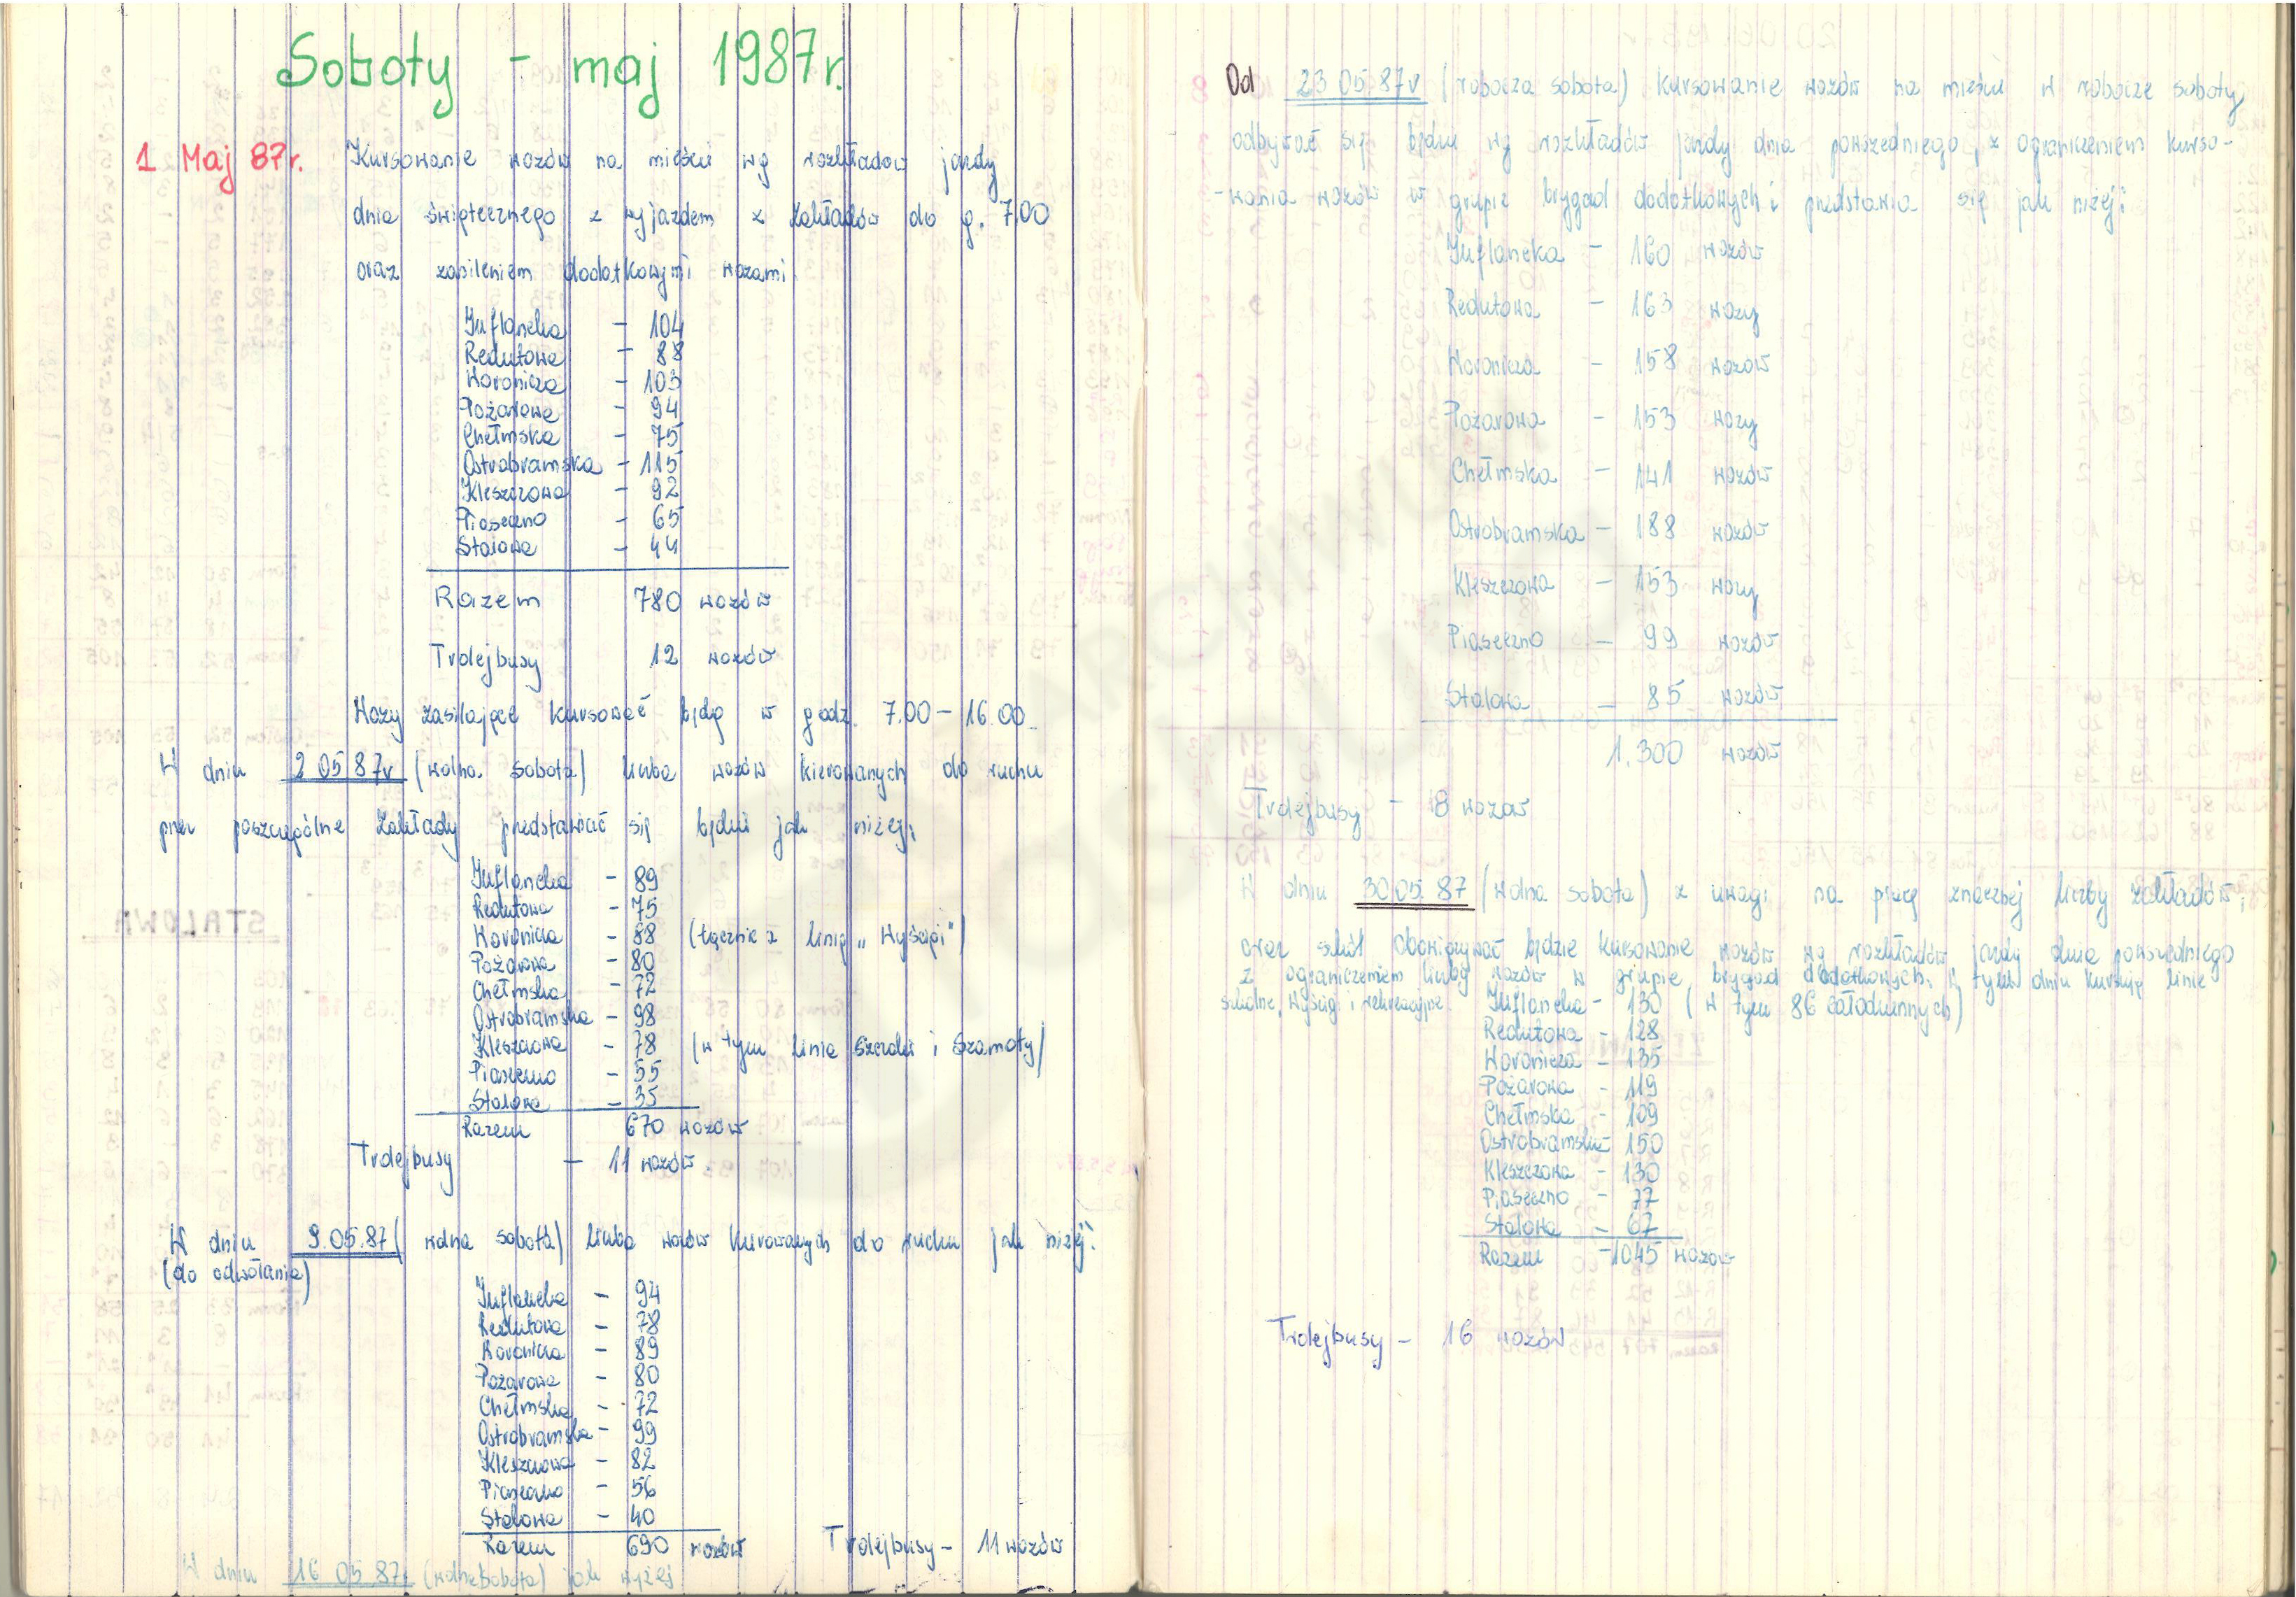 Soboty - maj 1987r.
1 Maj 87r. Kursowanie wozów na mieście wg rozkładów jazdy
dnia świątecznego z wyjazdem z Zakładów do g. 7.00
oraz zasileniem dodatkowymi wozami
Inflancka - 104
Redutowa - 88
Woronicza - 103
Pożarowa - 94
Chełmska - 75
Ostrobramska - 115
Kleszczowa - 92
Piaseczno - 65
Stalowa - 44
Razem 780 wozów
Trolejbusy 12 wozów
Wozy zasilające kursować będą w godz. 7.00 - 16.00
W dniu 2 05 87r (wolna sobota) liczba wozów kierowanych do ruchu
przez poszczególne Zakłady przedstawiać się będzie jak niżej:
Inflancka - 89
Redutowa - 75
Woronicza - 88 (łącznie z linią „Wyścigi")
Pożarowa - 80
Chełmska - 72
Ostrobramska - 98
Kleszczowa - 78 (w tym linie Szczaki i Szamoty)
Piaseczno - 55
Stalowa - 35
Razem 670 wozów
Trolejbusy - 11 wozów
W dniu 9.05.87 (wolna sobota) liczba wozów kierowanych do ruchu jak niżej:
(do odwołania)
Inflancka - 94
Redutowa - 78
Woronicza - 89
Pożarowa - 80
Chełmska - 72
Ostrobramska - 99
Kleszczowa - 82
Piaseczno - 56
Stalowa - 40
Razem 690 wozów Trolejbusy - 11 wozów
W dniu 16 05 87r (wolna sobota) jak wyżej
Od 23 05 87r (robocza sobota) kursowanie wozów na mieście w robocze soboty
odbywać się będzie wg rozkładów jazdy dnia powszedniego, z ograniczeniem kurso-
-wania wozów w grupie brygad dodatkowych i przedstawia się jak niżej:
Inflancka - 160 wozów
Redutowa - 163 wozy
Woronicza - 158 wozów
Pożarowa - 153 wozy
Chełmska - 141 wozów
Ostrobramska - 188 wozów
Kleszczowa - 153 wozy
Piaseczno - 99 wozów
Stalowa - 85 wozów
1.300 wozów
Trolejbusy - 18 wozów
W dniu 30.05.87 (wolna sobota) z uwagi na pracę znacznej liczby zakładów,
oraz szkół obowiązywać będzie kursowanie wozów wg rozkładów jazdy dnia powszedniego
z ograniczeniem liczby wozów w grupie brygad dodatkowych. W tym dniu kursują linie
szkolne, Wyścigi i rekreacyjne. Inflancka - 130 (w tym 86 całodziennych)
Redutowa - 128
Woronicza - 135
Pożarowa - 119
Chełmska - 109
Ostrobramska - 150
Kleszczowa - 130
Piaseczno - 77
Stalowa - 67
Razem - 1045 wozów
Trolejbusy - 16 wozów